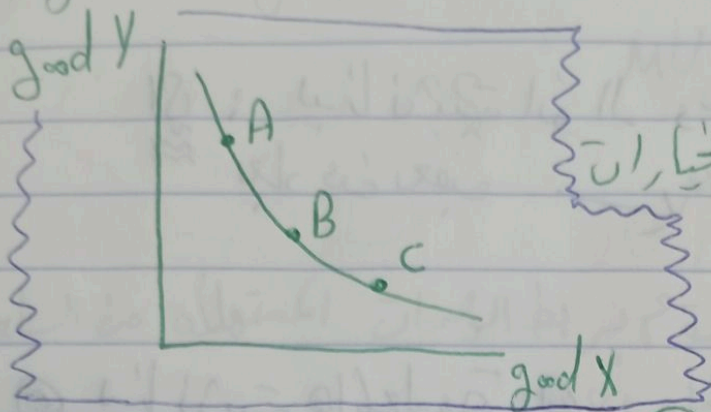 good Y
A
B
C
good X